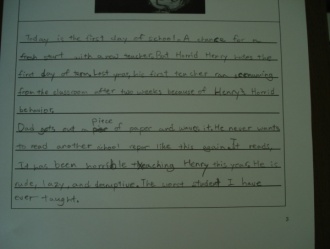 Today is the first day of school. A chance for a
fresh start with a new teacher. But Horrid Henry the
first day of term. Last year, his first teacher ran screaming
from the classroom after two weeks because of Henry's Horrid
behavior.
Dad gets out a piece of paper and waves it. He never wants
to read another school repor like this again. It reads,
It has been horrible teaching Henry this year. He is
rude, lazy, and disruptive. The worst student I have
ever taught.